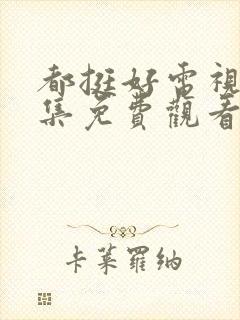 都挺好電視
集免費觀看
卡萊羅納